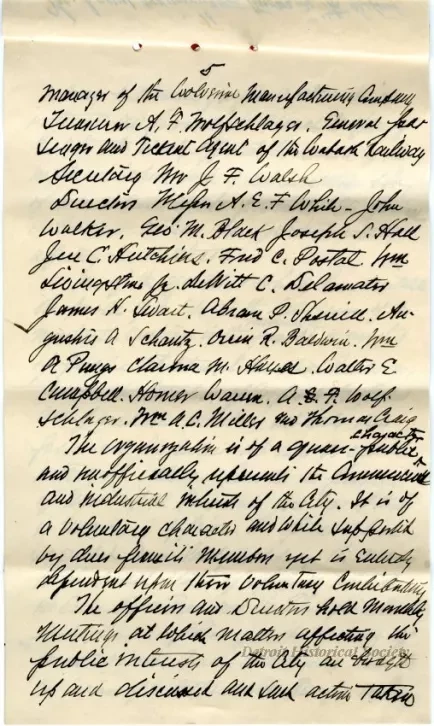 5
manager of the Wolverine Manufacturing Company
Treasurer A. F. Wolfschlager. General Pas
senger and Ticket Agent of the Wabash Railway
Secretary Mr J. F. Walsh
Directors Messrs A. E. F White - John
Walker, Geo. M. Black Joseph S. Hall
Jere C. Hutchins, Fred C. Postal. Wm
Livingstone Jr. DeWitt C. Delamater
James N. Swart. Abram P. Sherrill. Au-
gustus A Schantz. Orrin R. Baldwin. Wm
A Pungs Clarence M. Hayes. Walter E
Campbell. Homer Warren. A. F. Wolf-
schlager. Wm A. C. Miller and Thomas Craig
character
The organization is of a quasi-public
and unofficially represents the Commercial
and industrial interests of the City. It is of
a voluntary character and while supported
by dues from its members yet is entirely
dependent upon their voluntary Contributions
The officers and Directors hold Monthly
Meetings at which matters affecting the
public interests of the City are brought
up and discussed and such action taken
Detroit Historical Society